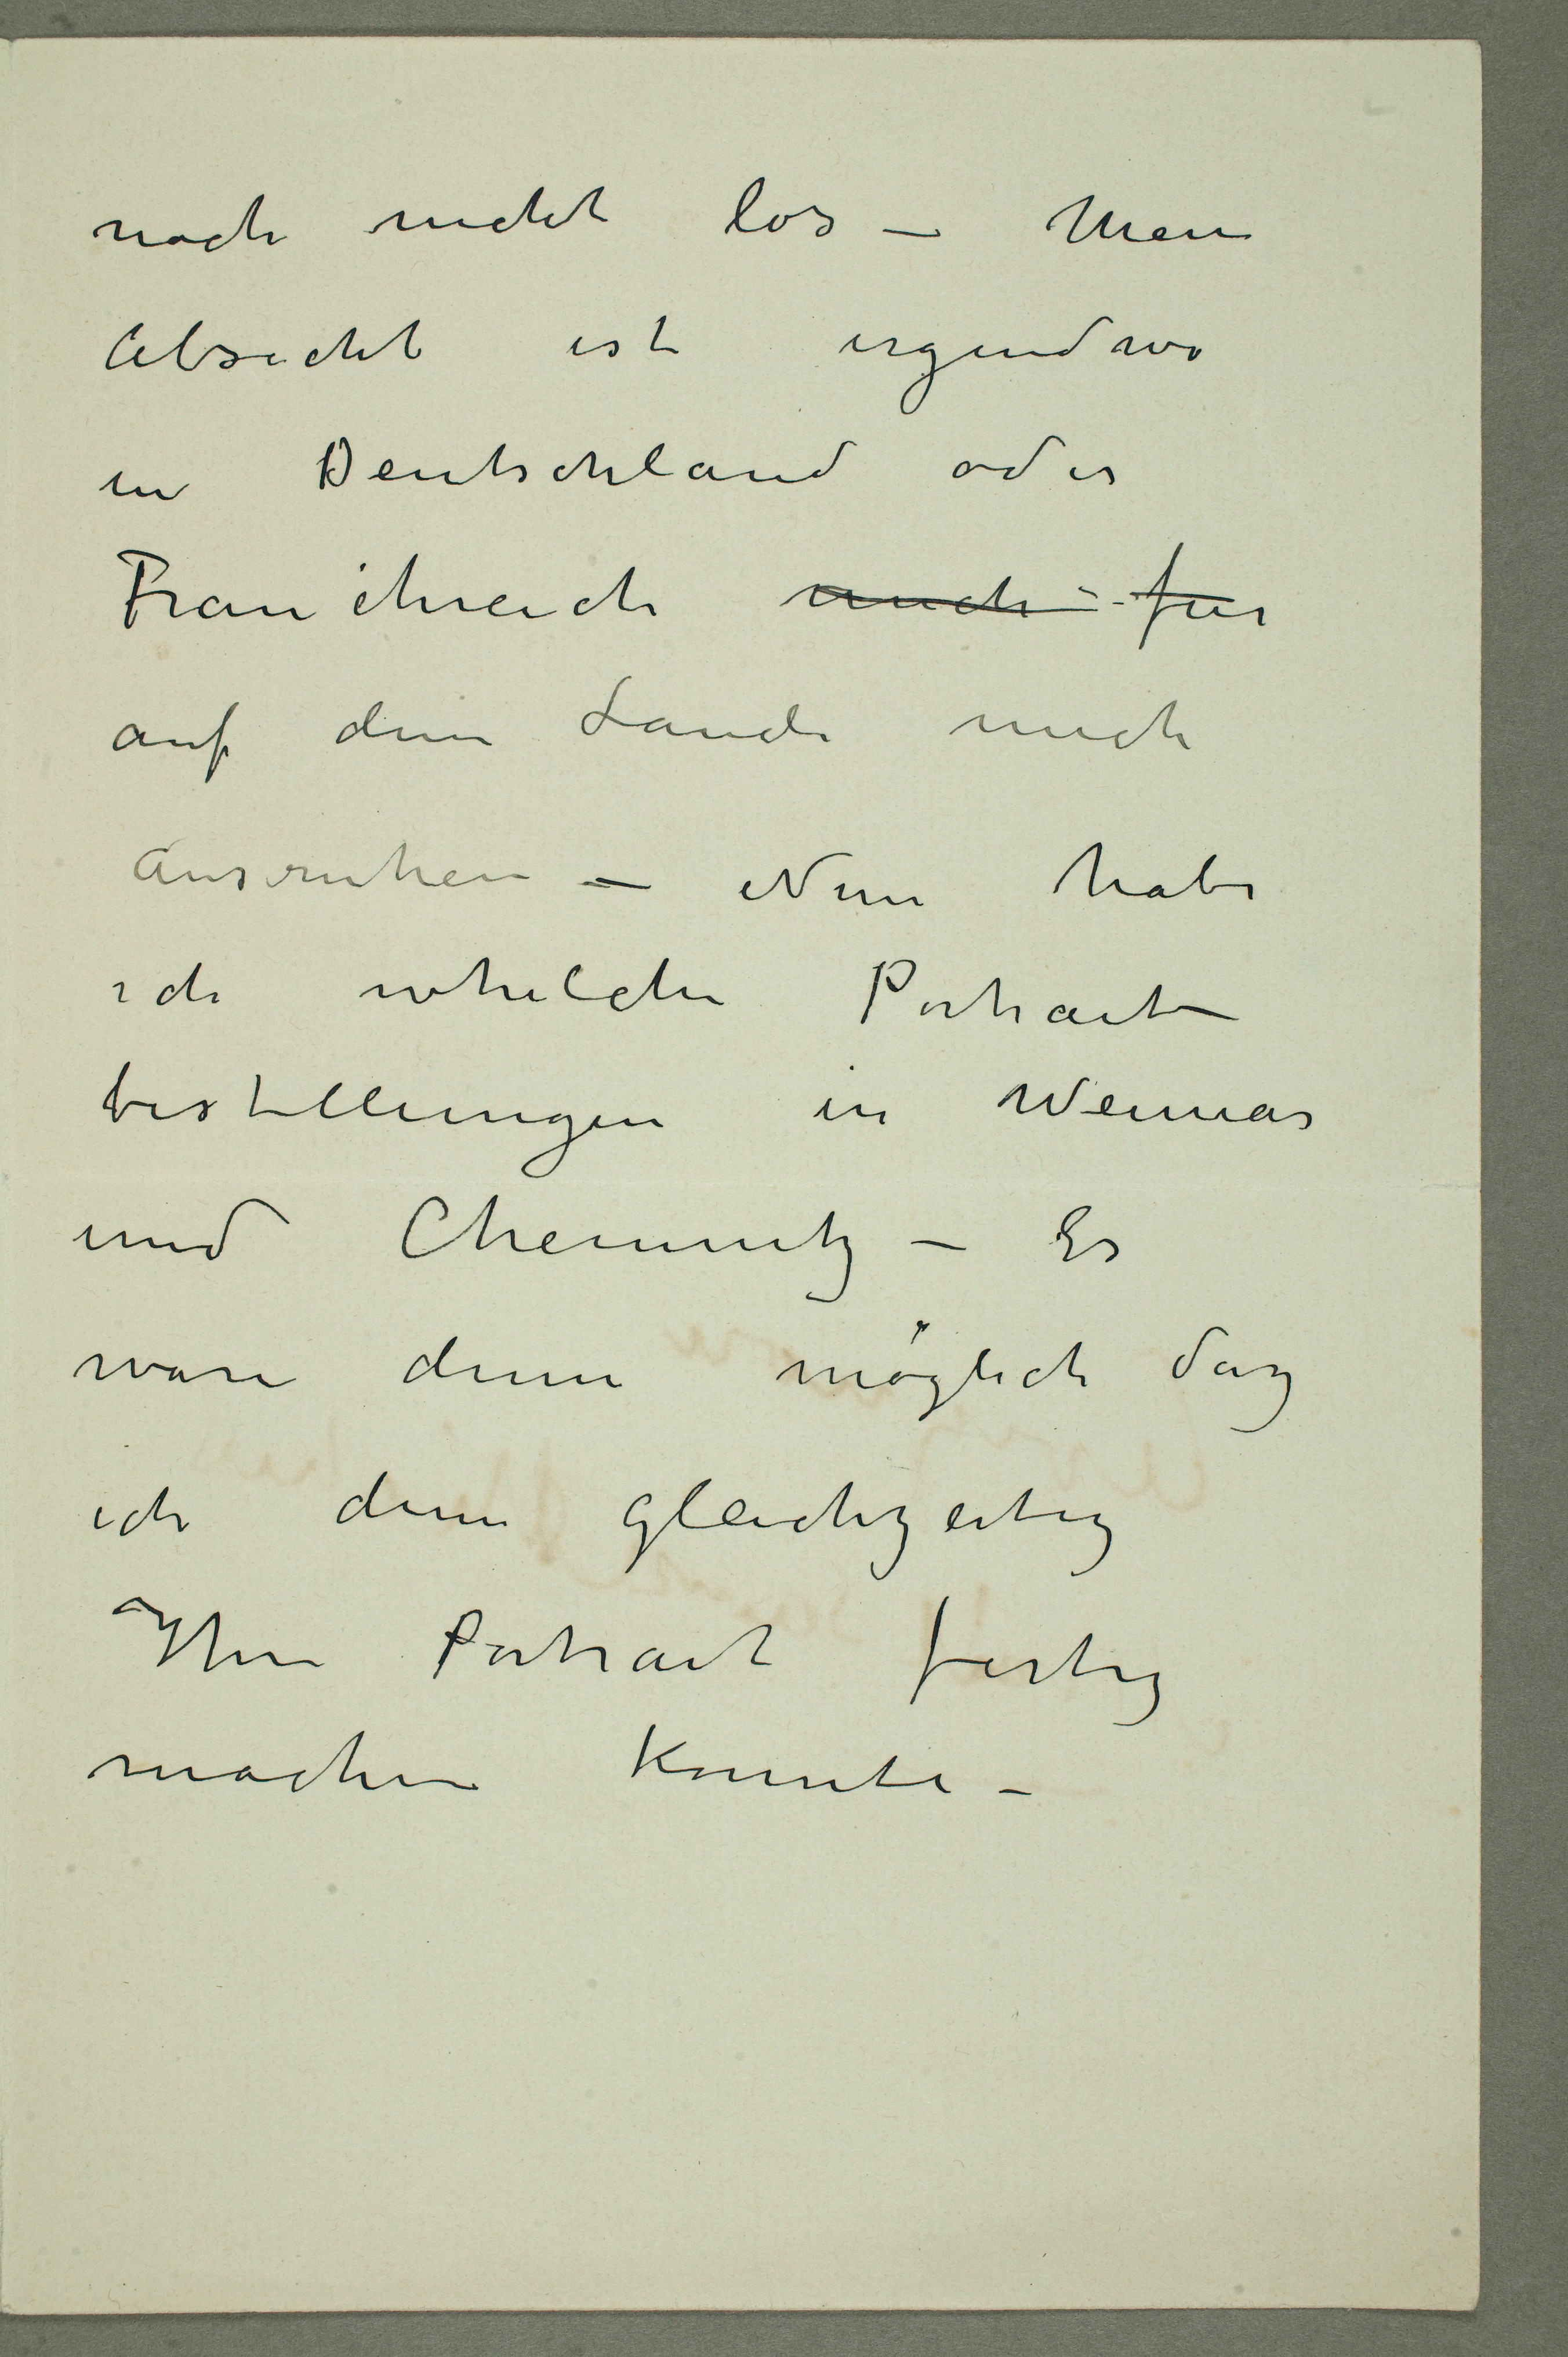 noch nicht los – Mein
Absicht ist irgendwo
in Deutschland oder
Franchreich mich für
auf dem Lande mich
ausruhen – Nun habe
ich whelche Portrait
bestellungen in Weimar
und Chemnitz – Es
ware denn möglich daz
ich denn gleichzeitig
Ihre Portrait fertig
machen konnte –